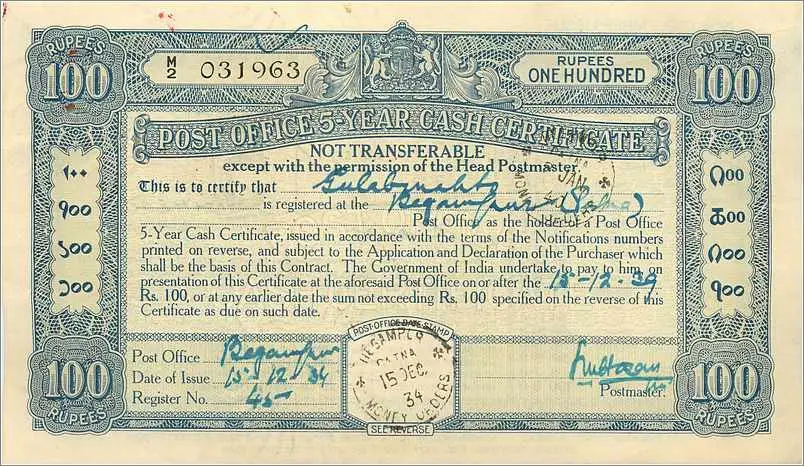 RUPEES
100
M/2 031963
RUPEES
ONE HUNDRED
RUPEES
100
POST OFFICE 5-YEAR CASH CERTIFICATE
NOT TRANSFERABLE
except with the permission of the Head Postmaster
This is to certify that
is registered at the Begampur
Post Office as the holder of a Post Office
5-Year Cash Certificate, issued in accordance with the terms of the Notifications numbers
printed on reverse, and subject to the Application and Declaration of the Purchaser which
shall be the basis of this Contract. The Government of India undertake to pay to him on
presentation of this Certificate at the aforesaid Post Office on or after the 15-12-39
Rs. 100, or at any earlier date the sum not exceeding Rs. 100 specified on the reverse of this
Certificate as due on such date.
१००
Post Office Begampur
Date of Issue 15 12 34
Register No. 45
POST-OFFICE DATE STAMP
BEGAMPUR
PATNA
15 DEC.
34
MONEY ORDERS
SEE REVERSE
Postmaster.
100
RUPEES
100
RUPEES